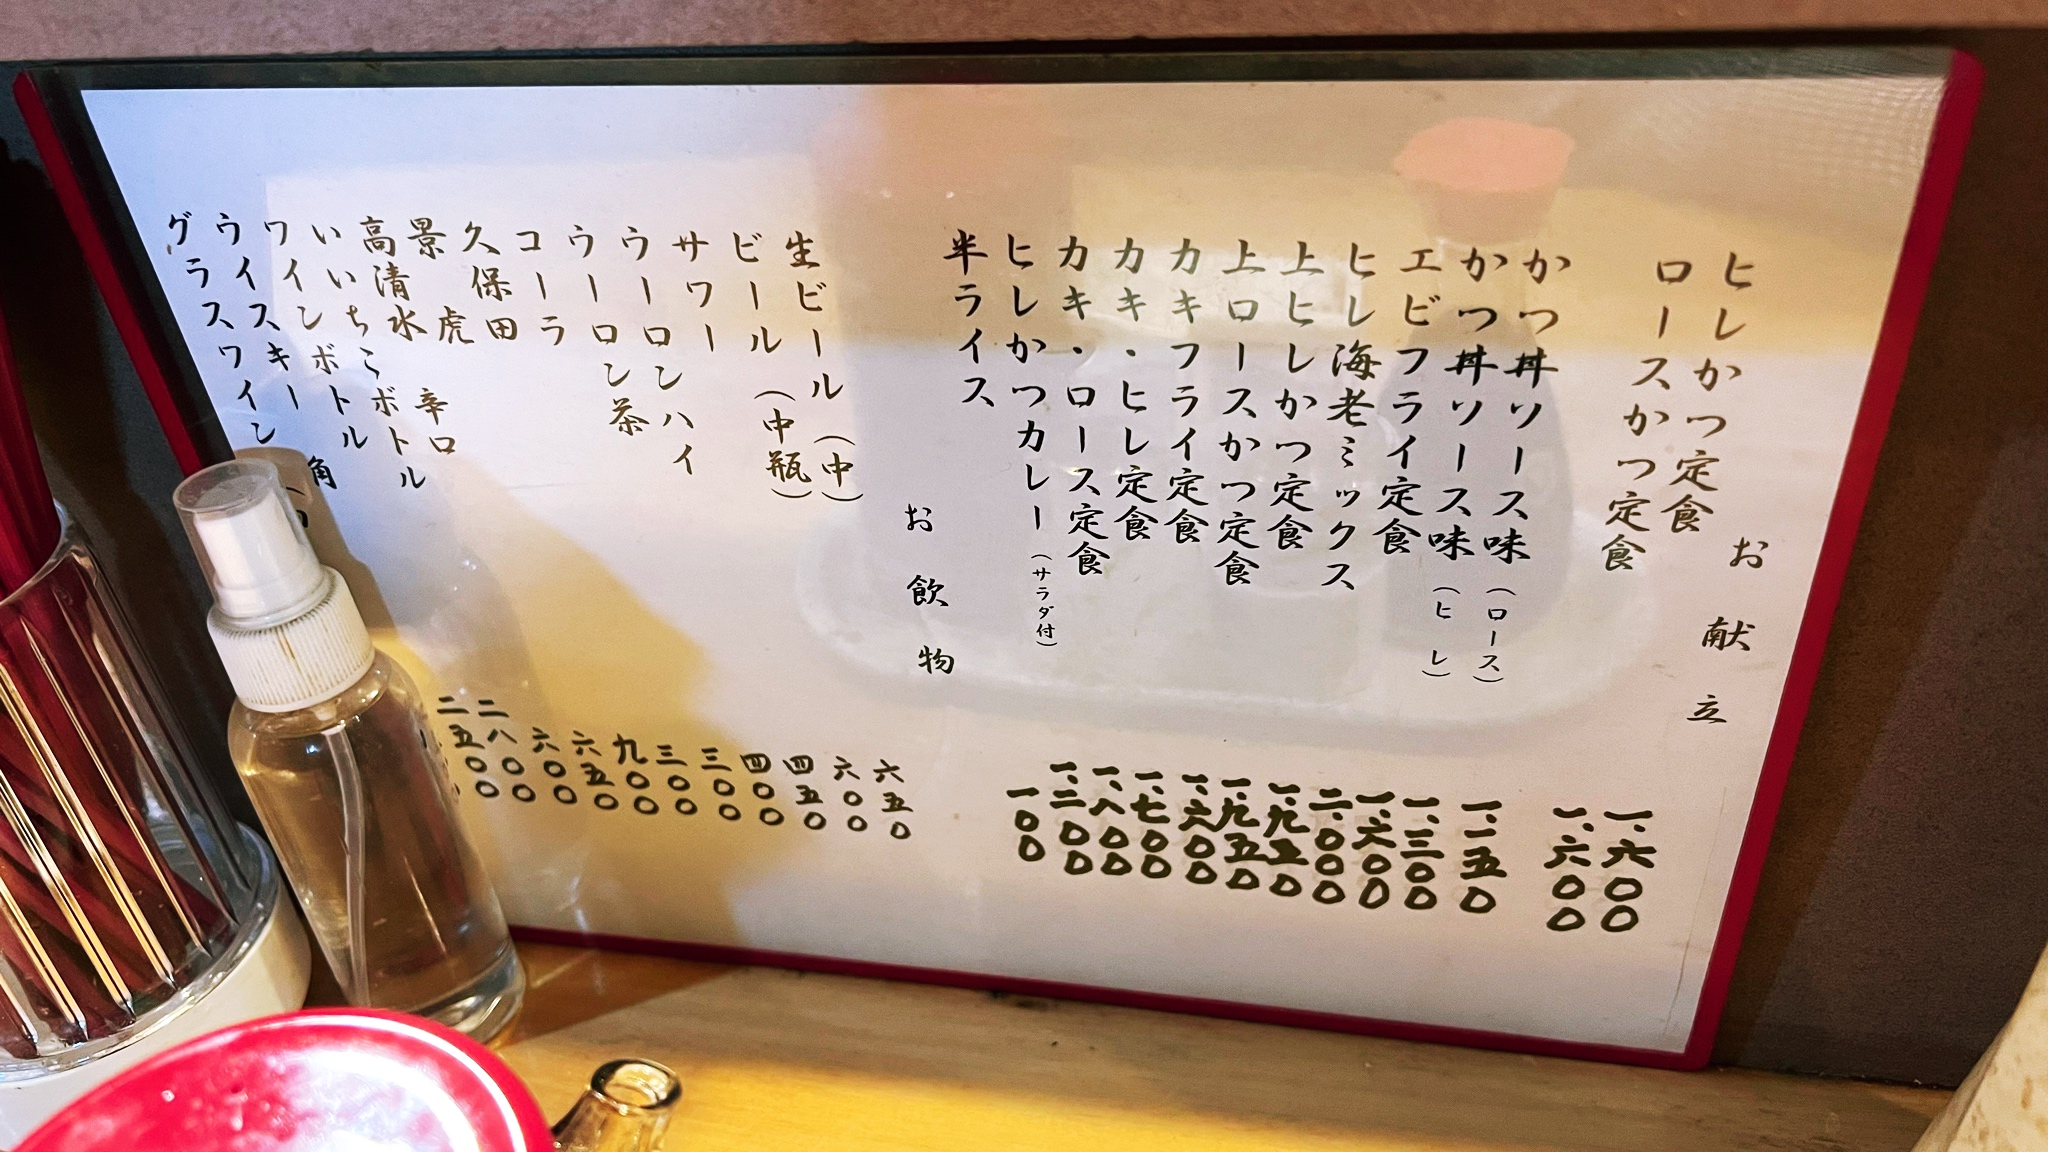 お献立
ヒレかつ定食 一、六〇〇
ロースかつ定食 一、六〇〇
かつ丼ソース味（ロース） 一、一五〇
かつ丼ソース味（ヒレ） 一、三〇〇
エビフライ定食 一、六〇〇
ヒレ海老ミックス 二、〇〇〇
上ヒレかつ定食 一、九五〇
上ロースかつ定食 一、九五〇
カキフライ定食 一、六〇〇
カキ・ヒレ定食 一、七〇〇
カキ・ロース定食 一、八〇〇
ヒレかつカレー（サラダ付） 一、二〇〇
半ライス 一〇〇
お飲物
生ビール（中） 六五〇
ビール（中瓶） 六〇〇
サワー 四五〇
ウーロンハイ 四〇〇
ウーロン茶 三〇〇
コーラ 三〇〇
久保田 九〇〇
景虎 六五〇
高清水 辛口 六〇〇
いいちこボトル 二八〇〇
ワインボトル 二五〇〇
ウイスキー 角
グラスワイン